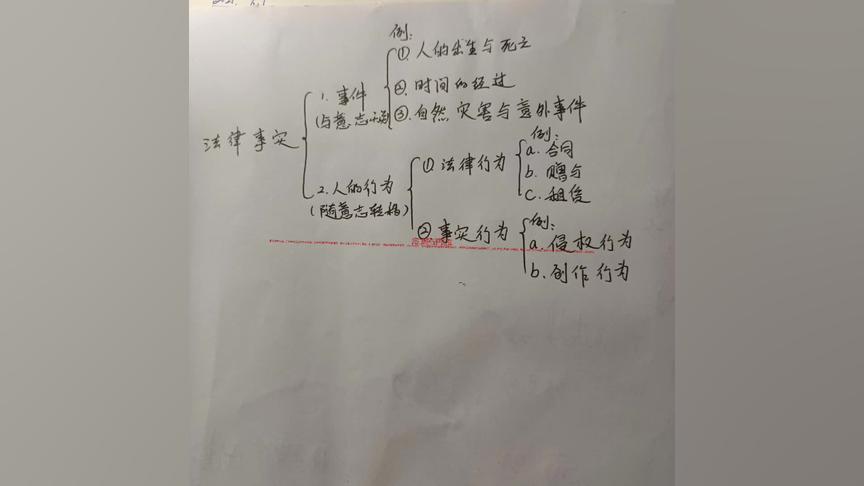 例:
①. 人的出生与死亡
1. 事件
②. 时间的经过
③. 自然灾害与意外事件
法律事实
例:
①. 法律行为
a. 合同
b. 赠与
2. 人的行为
c. 租赁
(随意志转移)
②. 事实行为
例:
a. 侵权行为
b. 创作行为